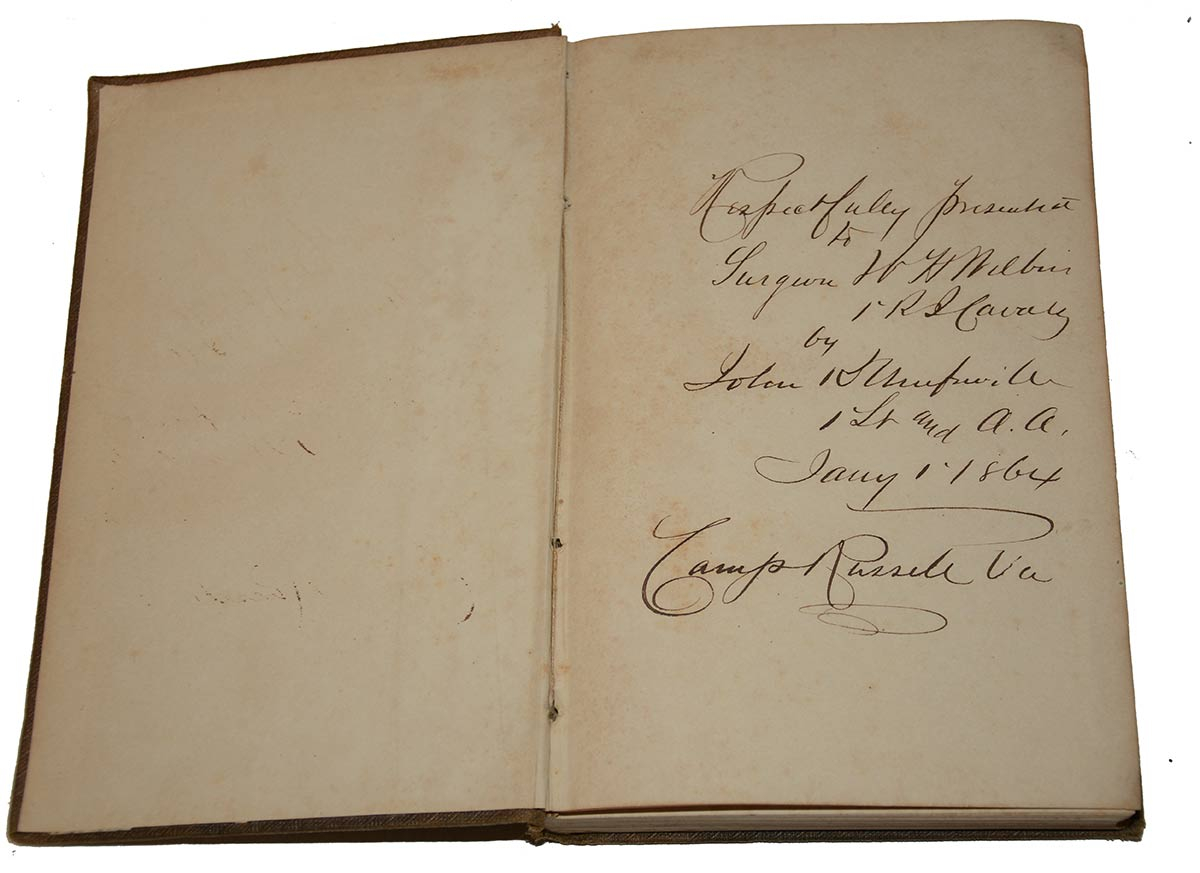 Respectfully presented
to
Surgeon W H Wilbur
1 R I Cavalry
by
John
1 Lt and A. A.
Jany 1 1864
Camp Russell Va